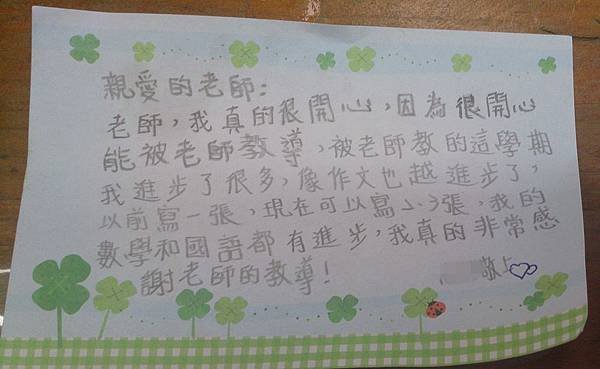 親愛的老師：
老師，我真的很開心，因為很開心
能被老師教導，被老師教的這學期
我進步了很多，像作文也越進步了，
以前寫一張，現在可以寫2、3張，我的
數學和國語都有進步，我真的非常感
謝老師的教導！
敬上